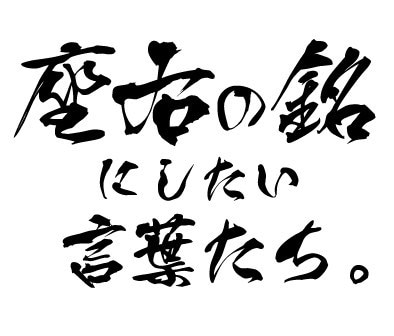 座右の銘
にしたい
言葉たち。